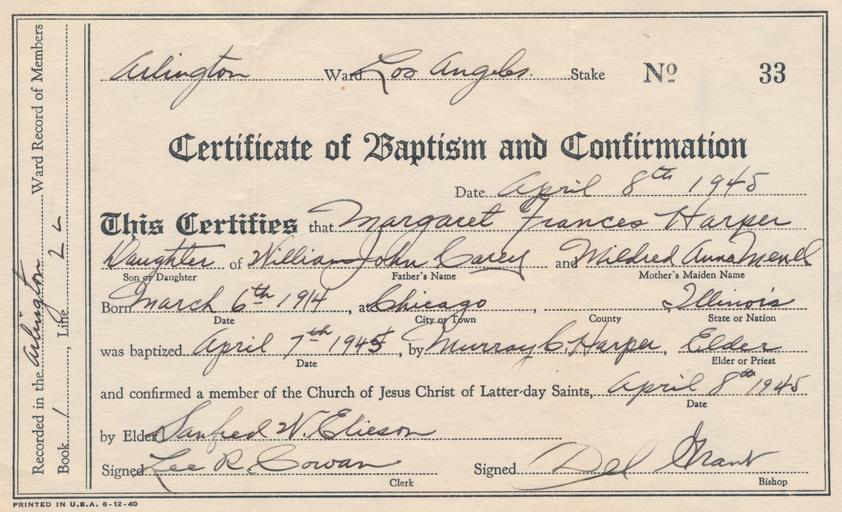 Arlington Ward Los Angeles. Stake Nº 33
Certificate of Baptism and Confirmation
Date April 8th 1945
This Certifies that Margaret Frances Harper
Daughter of William John Carey and Mildred Anna Menell
Son or Daughter Father's Name Mother's Maiden Name
Born March 6th 1914, at Chicago, Illinois
Date City or Town County State or Nation
was baptized April 7th 1945, by Murray C. Harper, Elder
Date Elder or Priest
and confirmed a member of the Church of Jesus Christ of Latter-day Saints, April 8th 1945
Date
by Elder Sanfred W. Elieson
Signed Lee R. Cowan Signed Del Grant
Clerk Bishop
Recorded in the Arlington Ward Record of Members
Book 1, Line 22
PRINTED IN U.S.A. 6-12-40